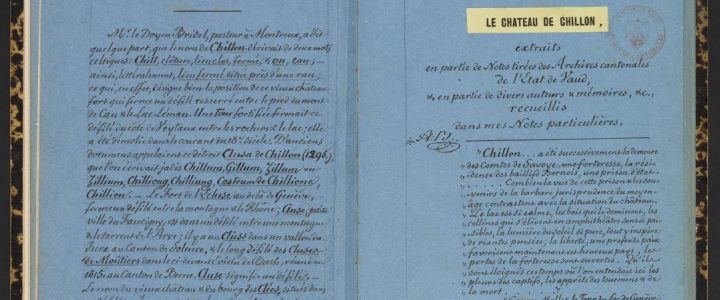 Mr. le Doyen Bridel, pasteur à Montreux, a dit
quelque part, que le nom de Chillon dérivait de deux mots
celtiques: Chill, clôture, lieu clos, fermé, & on, eau; —
ainsi, littéralement, lieu fermé situé près d'une eau;
ce qui, en effet, désigne bien la position de ce vieux château
fort qui ferme un défilé resserré entre le pied du mont
de Caux & le Lac Léman. Une tour fortifiée fermait ce
défilé du côté de Veytaux entre les rochers & le lac; elle
a été démolie dans le courant du 18e. siècle. D'anciens
documens appelaient ce détroit Clusa de Chillon (1295)
que l'on écrivait jadis Chillum, Gillum, Zillum ou
Zillium, Chilliong, Chilliung, Castrum de Chillione,
Chillion. — Le Fort de l'Ecluse au delà de Genève,
ferme un défilé entre la montagne & le Rhône; Cluse, petite
ville du Faucigny, est dans un défilé entre une montagne
& le torrent de l'Arve; il y a un Cluss dans un vallon
au Canton de Soleure, & le long défilé des Cluses
de Moûtiers dans le ci-devant Evêché de Basle, réuni en
1815 au Canton de Berne. Cluse signifie un défilé. —
Le nom du vieux château & du bourg des Clées, situés dans
LE CHATEAU DE CHILLON,
extraits
en partie de Notes tirées des Archives cantonales
de l'Etat de Vaud,
& en partie de divers auteurs & mémoires, &c.,
recueillis
dans mes Notes particulières.
"Chillon... a été successivement la demeure
des Comtes de Savoye, une forteresse, la rési-
dence des baillifs Bernois, une prison d'état.
... Combien la vue de cette prison & les sou-
venirs de la barbare jurisprudence du moyen-
âge contrastent avec la situation du château.
Le lac est si calme, les bois qui le dominent, les
collines qui s'élèvent en amphithéâtre sont si pai-
sibles, la lumière du soleil si pure, tout y inspire
de riantes pensées; la liberté, une profonde paix
favorisent maintenant ces heureux pays; les
portes de la forteresse sont ouvertes. Qu'ils
sont éloignés ces temps où l'on entendait ici les
pleurs des captifs, les apprêts des tourmens & de
la mort.